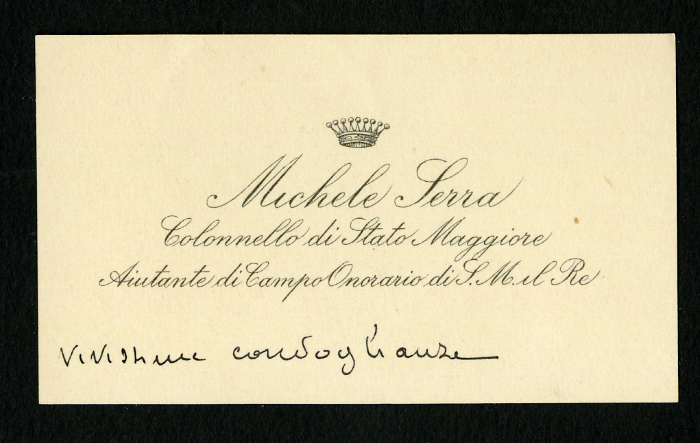 Michele Serra
Colonnello di Stato Maggiore
Aiutante di Campo Onorario di S. M. il Re
vivissime condoglianze